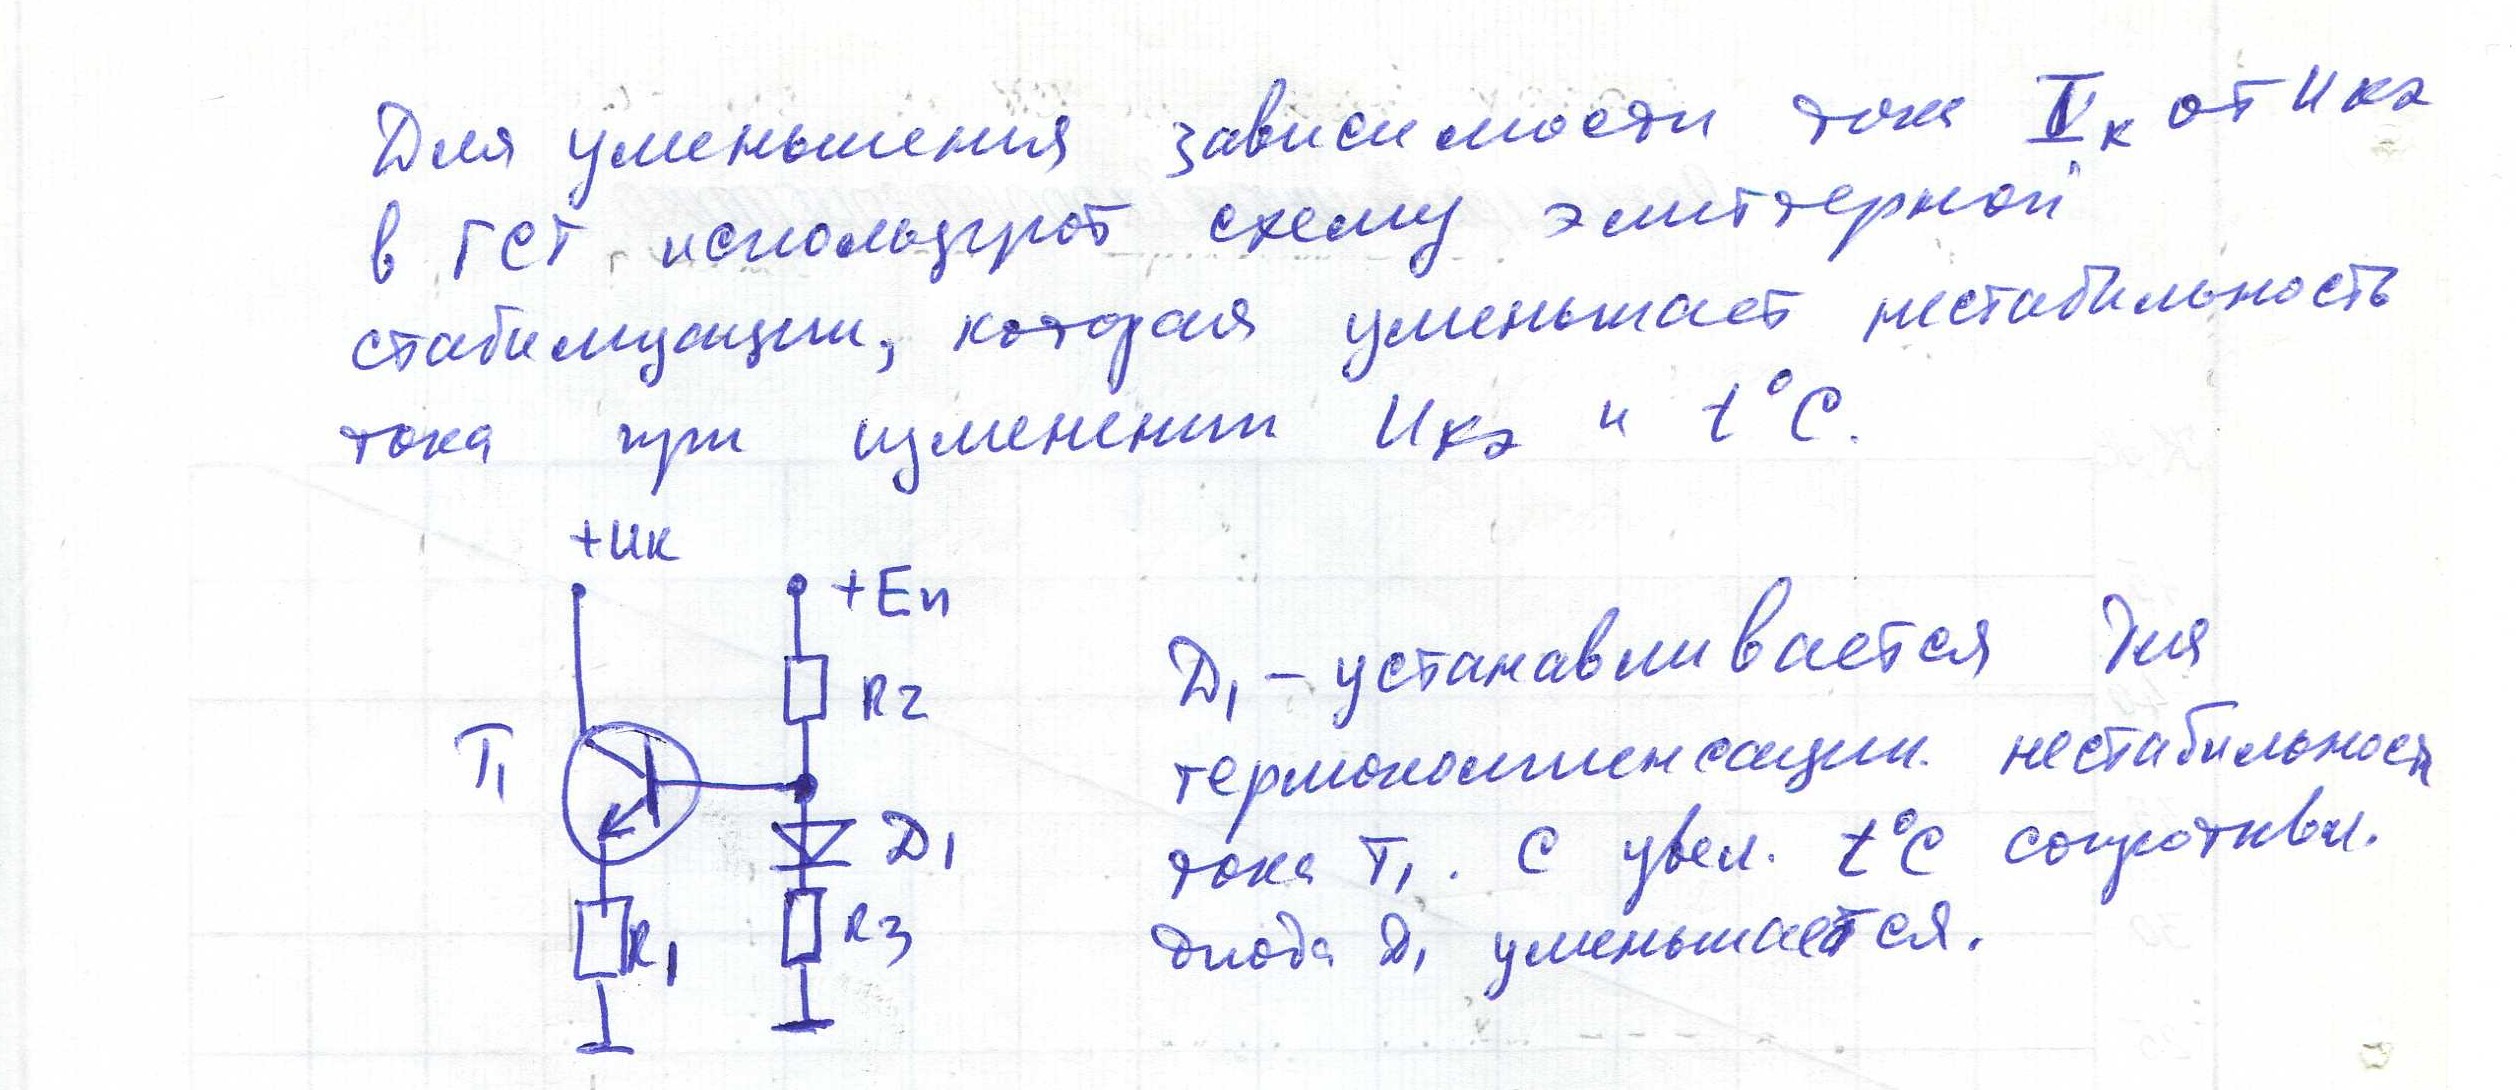 Для уменьшения зависимости тока Iк от Uкэ
в ГСТ используют схему эмиттерной
стабилизации, которая уменьшает нестабильность
тока при изменении Uкэ и t°C.
+Uк
+Eп
R2
T1
D1
R1
R3
D1 – устанавливается для
термокомпенсации нестабильност
тока T1. С увел. t°C сопротивл.
диода D1 уменьшается.